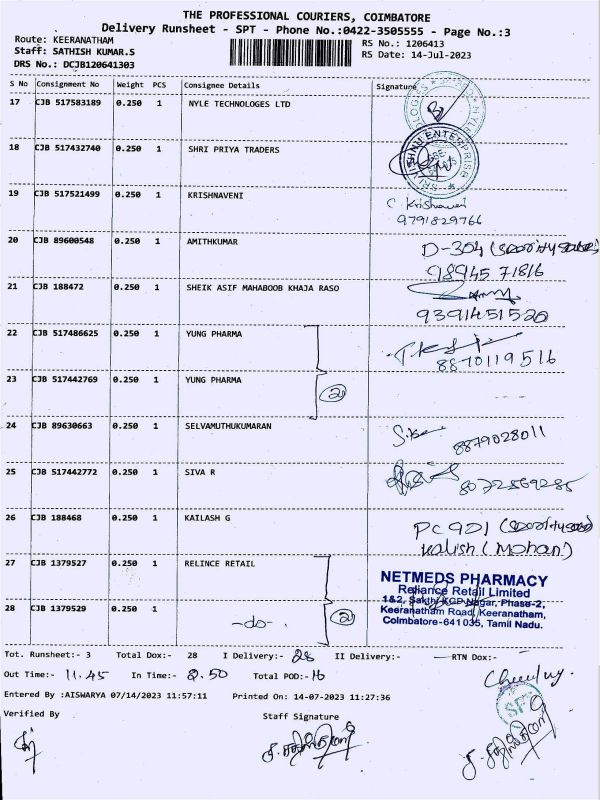 THE PROFESSIONAL COURIERS, COIMBATORE
Delivery Runsheet - SPT - Phone No.:0422-3505555 - Page No.:3
Route: KEERANATHAM
Staff: SATHISH KUMAR.S
DRS No.: DCJB120641303
RS No.: 1206413
RS Date: 14-Jul-2023
S No Consignment No Weight PCS Consignee Details Signature
17 CJB 517583189 0.250 1 NYLE TECHNOLOGES LTD
18 CJB 517432740 0.250 1 SHRI PRIYA TRADERS
19 CJB 517521499 0.250 1 KRISHNAVENI
C. Krishnaveni
9791829766
20 CJB 89600548 0.250 1 AMITHKUMAR
D-304
98945 71816
21 CJB 188472 0.250 1 SHEIK ASIF MAHABOOB KHAJA RASO
9391451520
22 CJB 517486625 0.250 1 YUNG PHARMA
8870119516
23 CJB 517442769 0.250 1 YUNG PHARMA
2
24 CJB 89630663 0.250 1 SELVAMUTHUKUMARAN
8879028011
25 CJB 517442772 0.250 1 SIVA R
8072569285
26 CJB 188468 0.250 1 KAILASH G
PC 901
Kalish (Mohan)
27 CJB 1379527 0.250 1 RELINCE RETAIL
NETMEDS PHARMACY
Reliance Retail Limited
1&2, Sakthi KGP Nagar, Phase-2,
Keeranatham Road, Keeranatham,
Coimbatore-641 035, Tamil Nadu.
28 CJB 1379529 0.250 1
-do-. 2
Tot. Runsheet:- 3 Total Dox:- 28 I Delivery:- 28 II Delivery:- RTN Dox:-
Out Time:- 11.45 In Time:- 2.50 Total POD:- 16
Entered By :AISWARYA 07/14/2023 11:57:11 Printed On: 14-07-2023 11:27:36
SPT
Verified By Staff Signature